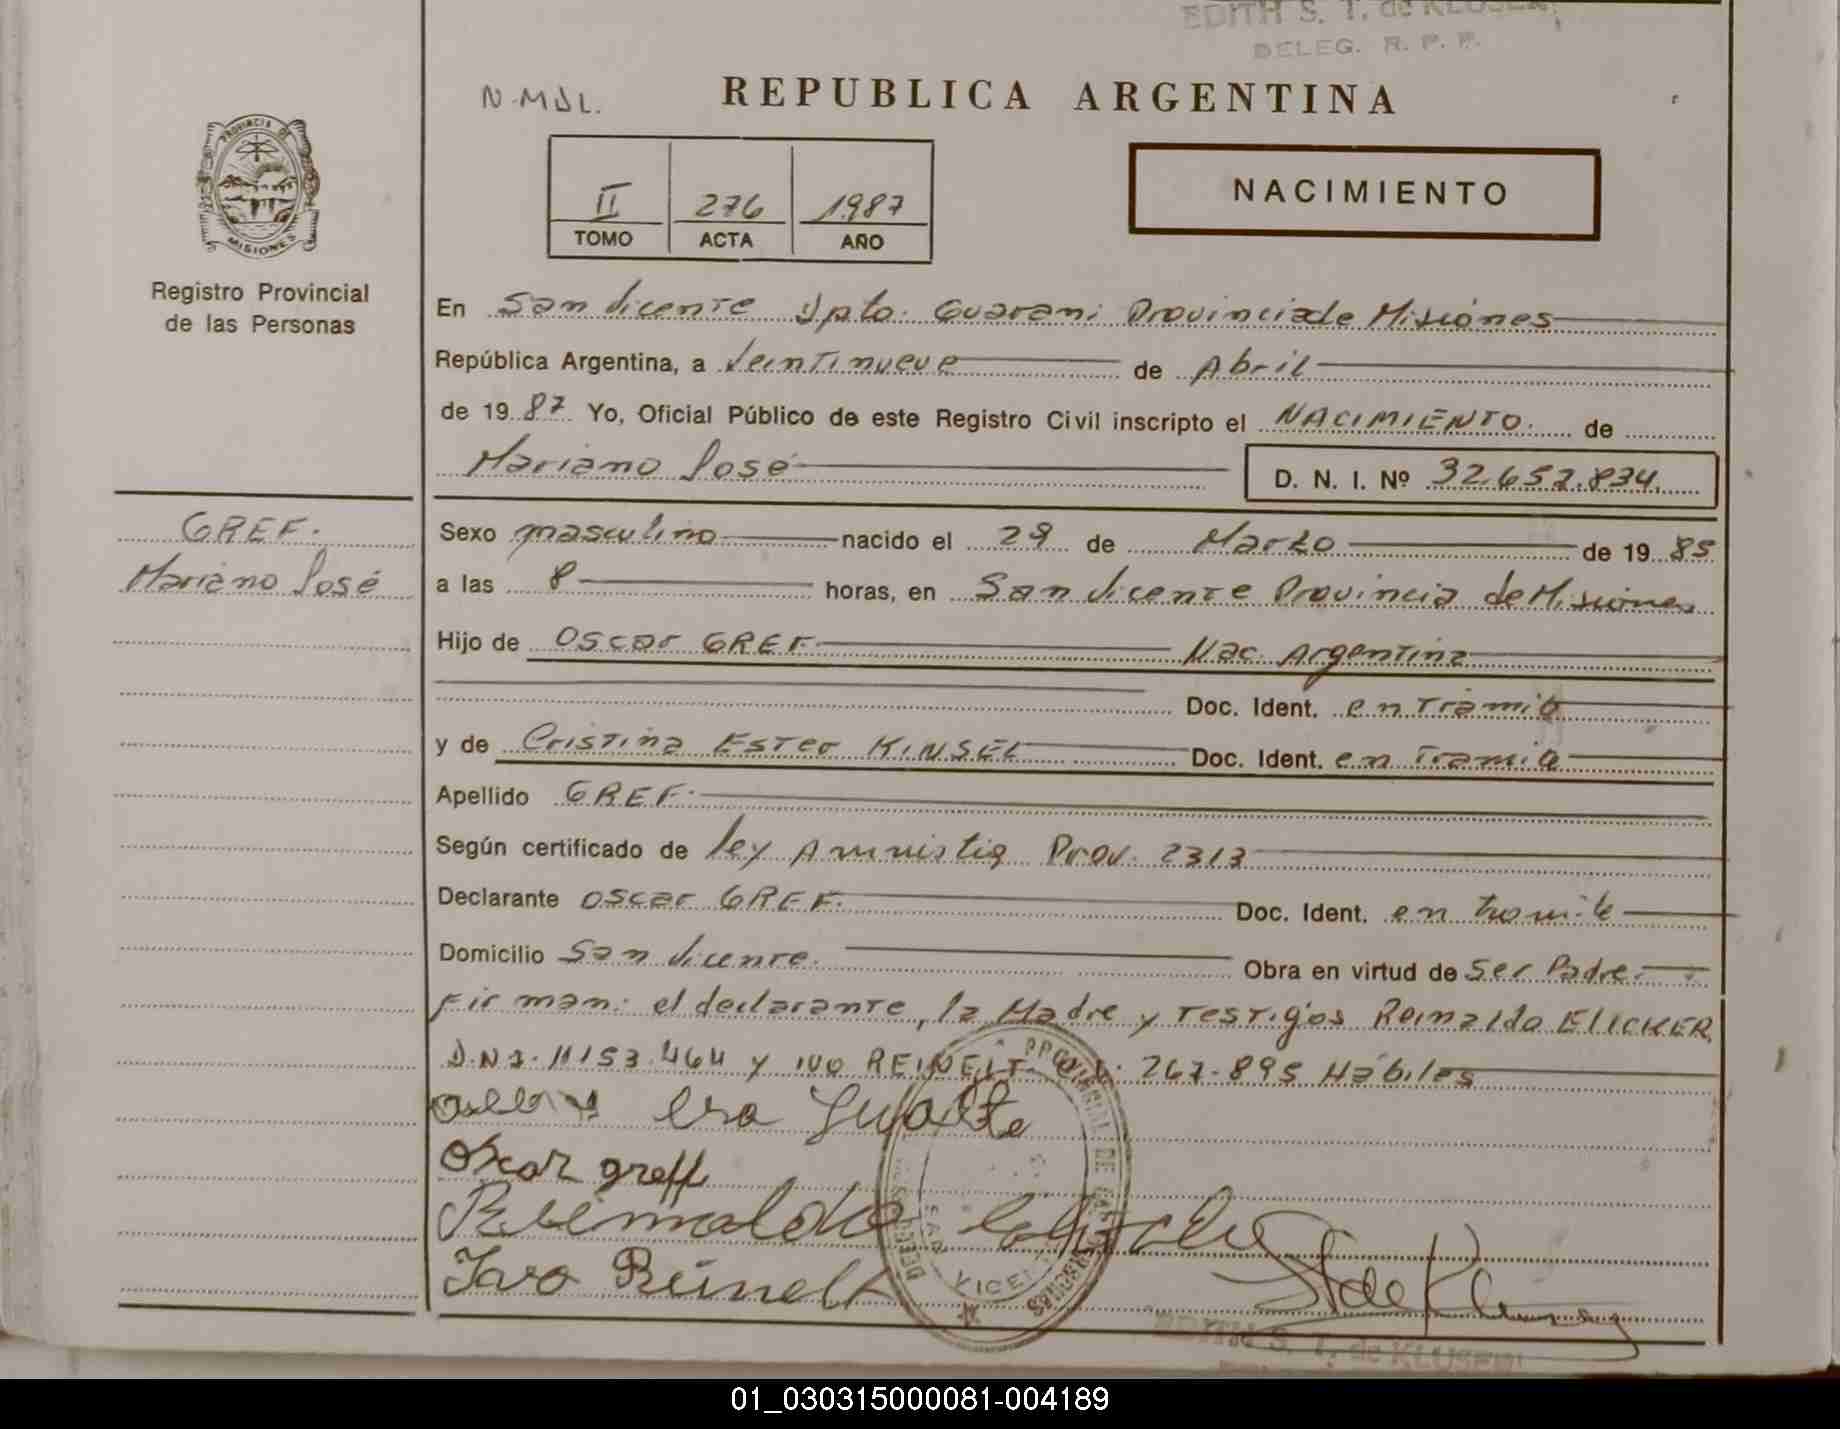 EDITH S. T. de KLUSER
DELEG. R. P. P.
N-MJL.
REPUBLICA ARGENTINA
PROVINCIA DE
MISIONES
II 276 1987
TOMO ACTA AÑO
NACIMIENTO
Registro Provincial
de las Personas
En San Vicente Dpto. Guarani Provincia de Misiones
República Argentina, a Veintinueve de Abril
de 19 87 Yo, Oficial Público de este Registro Civil inscripto el NACIMIENTO. de
Mariano José D. N. I. Nº 32.652.834.
GREF.
Mariano José
Sexo masculino nacido el 29 de Marzo de 19 85
a las 8 horas, en San Vicente Provincia de Misiones
Hijo de Oscar GREF Nac. Argentina
Doc. Ident. en Tramite
y de Cristina Ester KINSEL Doc. Ident. en Tramite
Apellido GREF.
Según certificado de ley Amnistia Prov. 2313
Declarante Oscar GREF. Doc. Ident. en tramite
Domicilio San Vicente. Obra en virtud de Ser Padre.
Firman: el declarante, la Madre y Testigos Reinaldo ELICKER
D.N.I. 11153.464 y IVO REINELT 267.895 Hábiles
Oscar greff
Reinaldo
Ivo Reinelt
EDITH S. T. de KLUSER
01_030315000081-004189